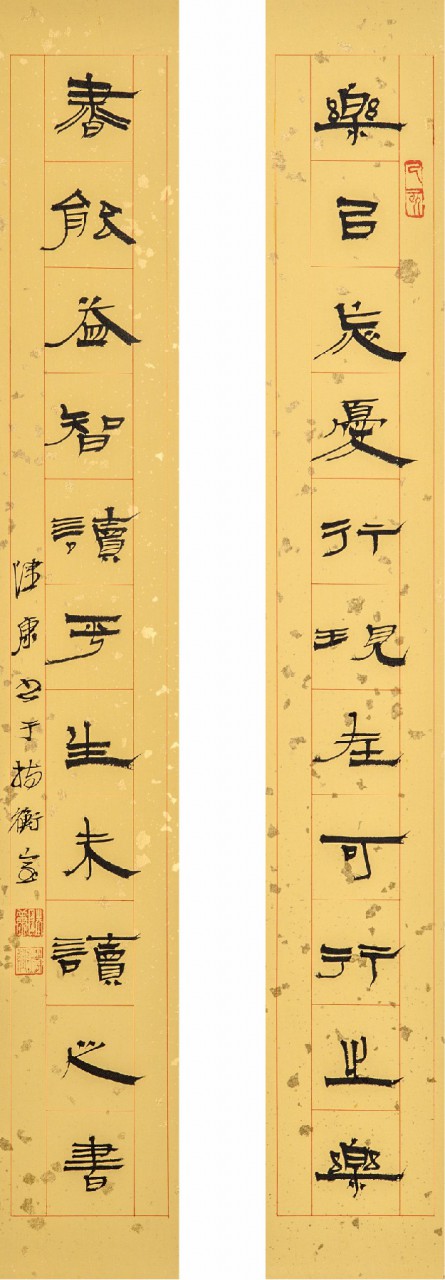 樂㠯忘憂行現在可行之樂
書能益智讀平生未讀之書
陳康书于揚衡室